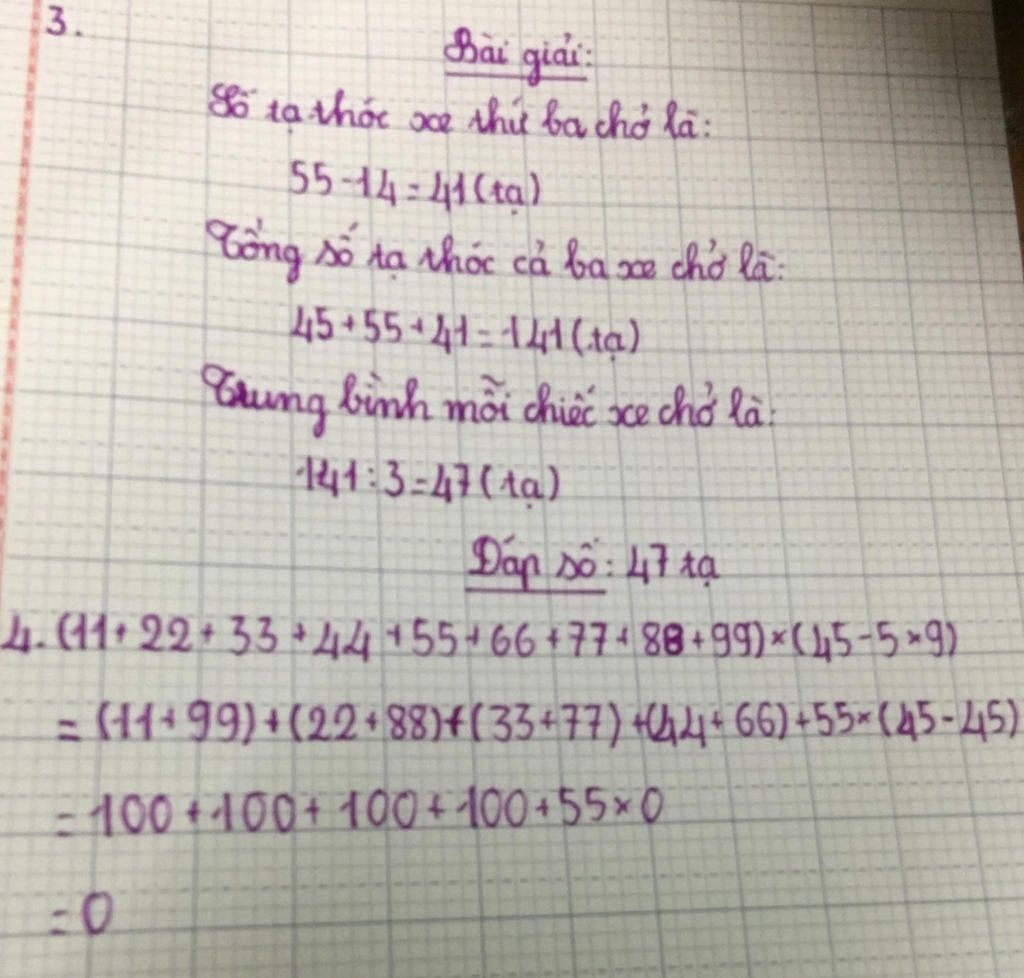 3.
Bài giải:
Số tạ thóc xe thứ ba chở là:
55-14=41(tạ)
Tổng số tạ thóc cả ba xe chở là:
45+55+41=141(tạ)
Trung bình mỗi chiếc xe chở là:
141:3=47(tạ)
Đáp số: 47 tạ
4. (11+22+33+44+55+66+77+88+99)×(45-5×9)
= (11+99)+(22+88)+(33+77)+(44+66)+55×(45-45)
= 100+100+100+100+55×0
= 0